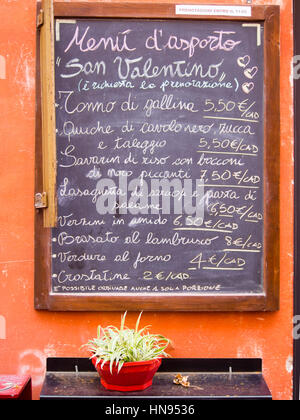 PRENOTAZIONI ENTRO IL 11/02
Menú d'asporto
"San Valentino"
(è richiesta la prenotazione)
Tonno di gallina 5,50€
Quiche di cavolo nero, zucca
e taleggio 5,50€/CAD
Savarin di riso con bocconi
di mora piccanti 7,50€/CAD
Lasaghetta di carciofi e pasta di
salame 6,50€/CAD
Verzini in umido 6,50€/CAD
Brasato al lambrusco 8€/CAD
Verdure al forno 4€/CAD
Crostatine 2€/CAD
È POSSIBILE ORDINARE ANCHE 1 SOLA PORZIONE
alamy
Image ID: HN9536
www.alamy.com